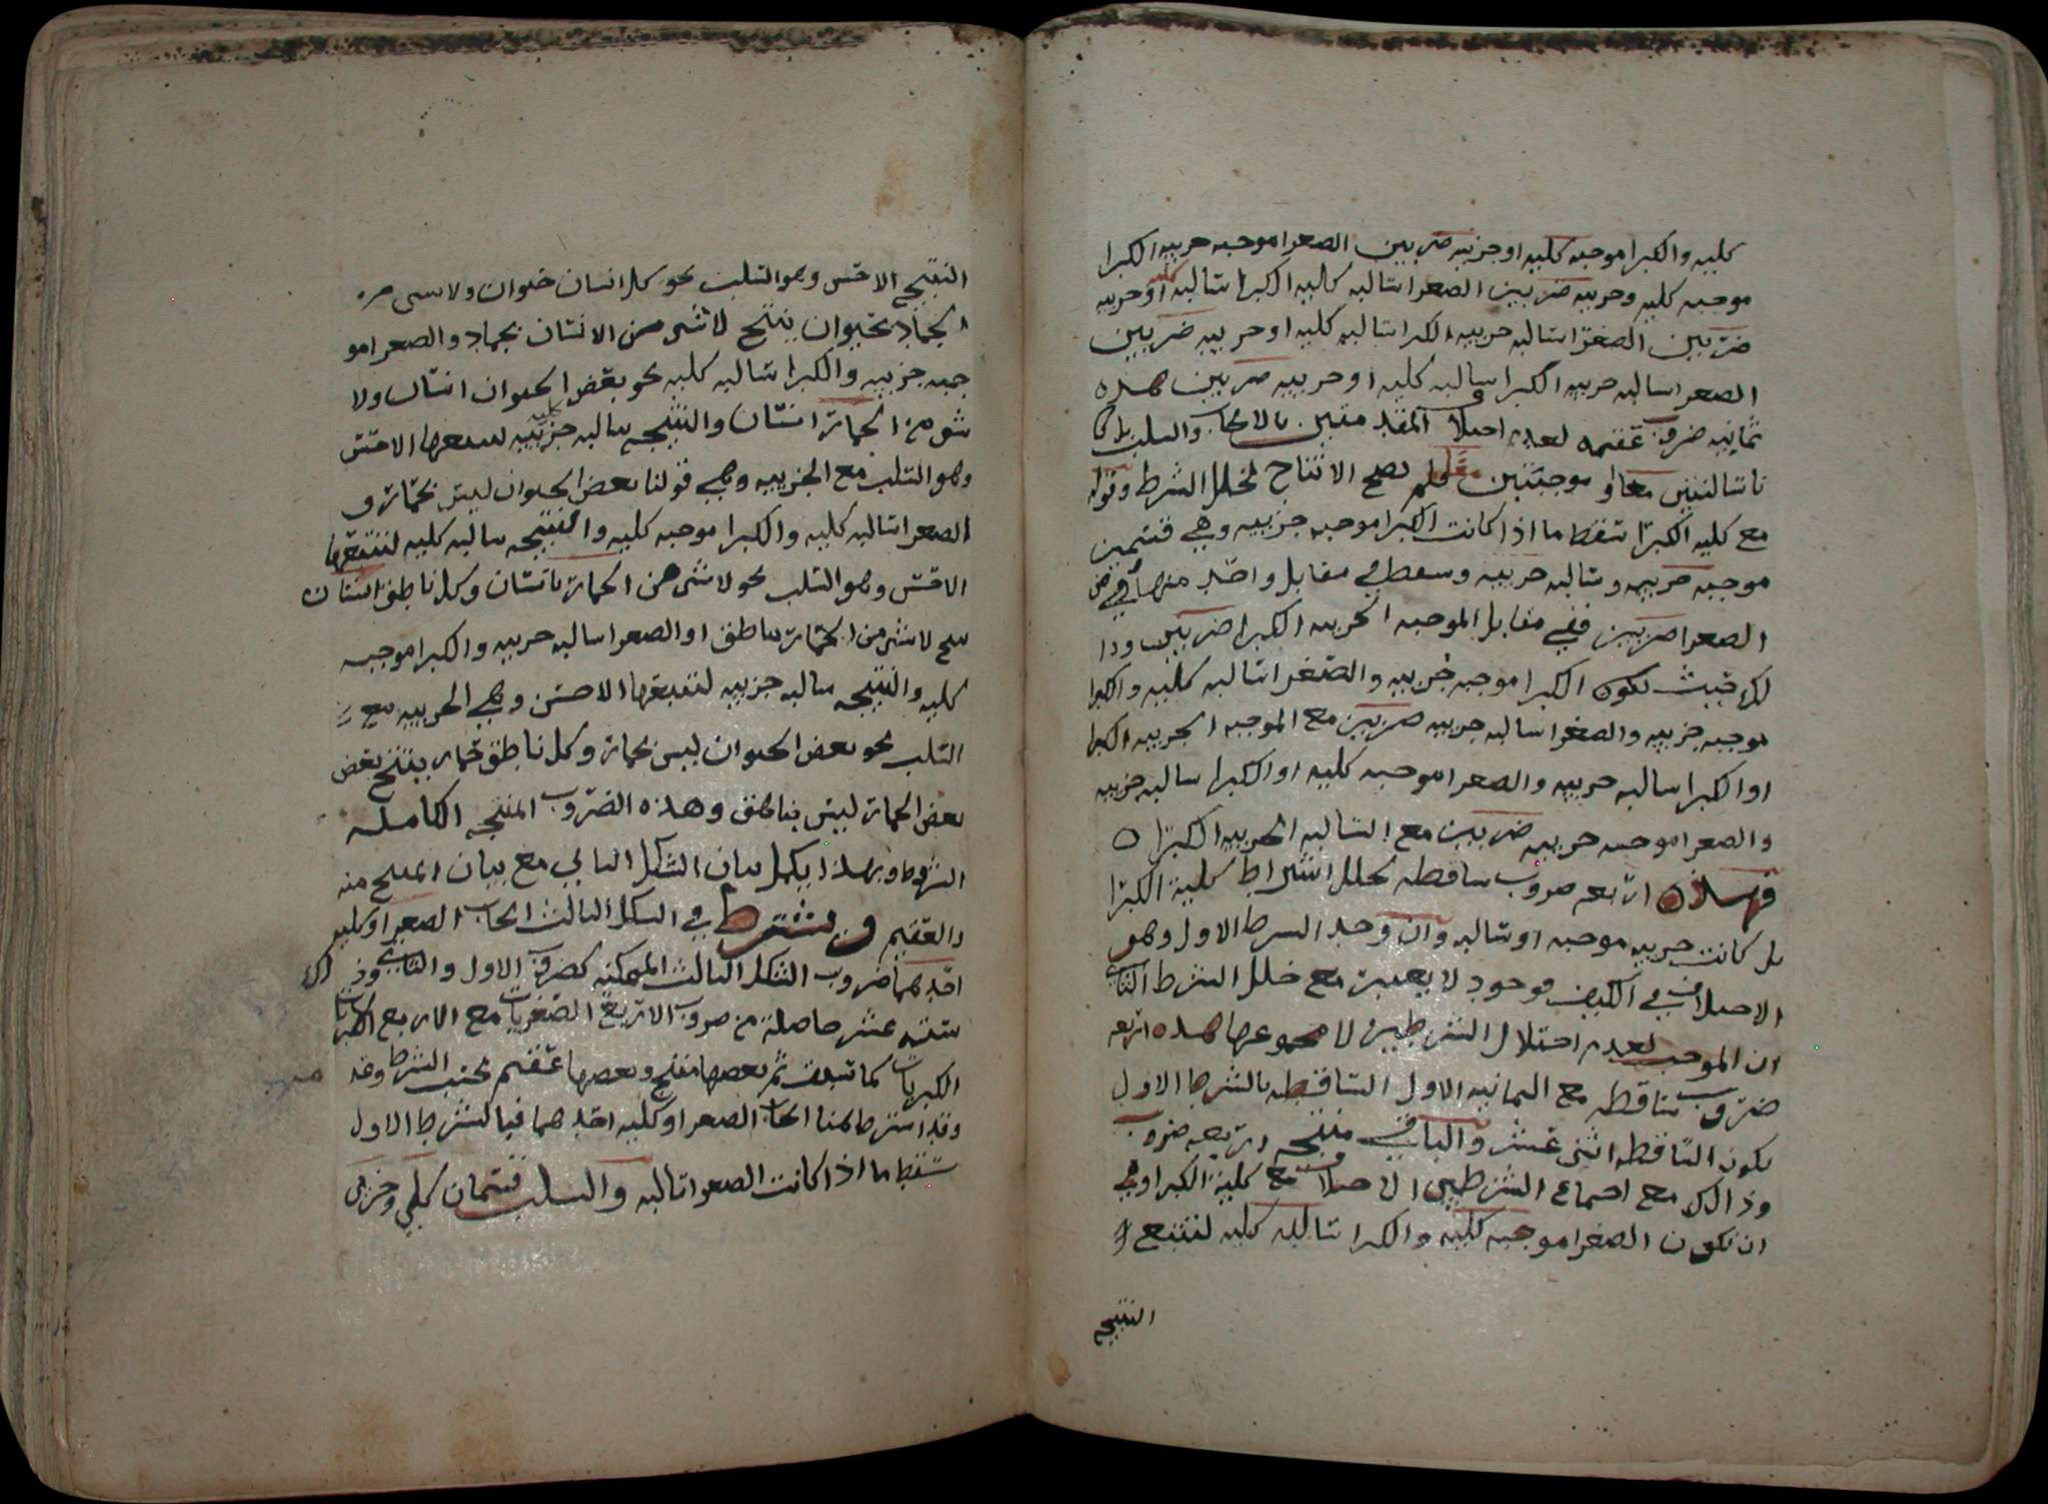 كليه والكبرا موجبه كليه او جزييه ضربين الصغرا موجبه جزييه الكبرا
موجبه كليه وجزييه ضربين الصغرا سالبه كليه الكبرا سالبه كليه او جزييه
ضربين الصغرا سالبه جزييه الكبرا سالبه كليه او جزييه ضربين
الصغرا سالبه جزييه الكبرا سالبه كليه او جزييه ضربين هذه
ثمانيه ضروب عقيمه لعدم اختلاف المقدمتين بالايجاب والسلب بل كا
نا سالبتين معا او موجبتين معا فلم يصح الانتاج لخلل الشرط وقوله
مع كليه الكبرا تسقط ما اذا كانت الكبرا موجبه جزييه وهي قسمين
موجبه جزييه وسالبه جزييه وسقط في مقابل واحد منها في
الصغرا ضربين ففي مقابل الموجبه الجزييه الكبرا ضربين وذا
لك حيث تكون الكبرا موجبه جزييه والصغرا سالبه كليه والكبرا
موجبه جزييه والصغرا سالبه جزييه ضربين مع الموجبه الجزييه الكبرا
او الكبرا سالبه جزييه والصغرا موجبه كليه او الكبرا سالبه جزييه
والصغرا موجبه جزييه ضربين مع السالبه الجزييه الكبرا ٥
فهذه اربعه ضروب ساقطه لخلل اشتراط كلية الكبرا
بل كانت جزييه موجبه او سالبه وان وجد الشرط الاول وهو
الاختلاف في الكيف موجود لا يعتبر مع خلل الشرط الثاني
ان الموجب لعدم اختلال الشرطين لا مجموعها هذه اربعه
ضروب ساقطه مع الثمانيه الاول الساقطه بالشرط الاول
تكون الساقطه اثنى عشر والباقي منتجه اربعه ضروب
وذالك مع اجتماع الشرطين الاختلاف مع كلية الكبرا وهي
ان تكون الصغرا موجبه كليه والكبرا سالبه كليه لتتبع
النتيجه
النتيجه الاخس وهو السلب نحو كل انسان حيوان ولا شى من
الجماد بحيوان ينتج لا شى من الانسان بجماد والصغرا مو
جبه جزييه والكبرا سالبه كليه نحو بعض الحيوان انسان ولا
شى من الحمار انسان والنتيجه سالبه جزييه لتتبعها الاخس
وهو السلب مع الجزييه وهي قولنا بعض الحيوان ليس بحمار و
الصغرا سالبه كليه والكبرا موجبه كليه والنتيجه سالبه كليه لتتبعها
الاخس وهو السلب نحو لا شى من الحمار بانسان وكل ناطق انسان
ينتج لا شى من الحمار بناطق او الصغرا سالبه جزييه والكبرا موجبه
كليه والنتيجه سالبه جزييه لتتبعها الاخس وهي الجزييه مع
السلب نحو بعض الحيوان ليس بحمار وكل ناطق حمار ينتج بعض
بعض الحمار ليس بناطق وهذه الضروب المنتجه الكامله
الشروط وبهذا يكمل بيان الشكل الثاني مع بيان المنتج منه
والعقيم ويشترط في الشكل الثالث ايجاب الصغرا وكليه
احدهما ضروب الشكل الثالث الممكنه كضروب الاول والثاني وذلك
ستة عشر حاصلة من ضروب الاربع الصغريات مع الاربع الكبريات
الكبريات كما سلف ثم بعضها منتج وبعضها عقيم بحسب الشرط وقد
وقد اشترط هنا ايجاب الصغرا وكليه احدهما فبالشرط الاول
سقط ما اذا كانت الصغرا سالبه والسلب قسمان كلي وجزيي